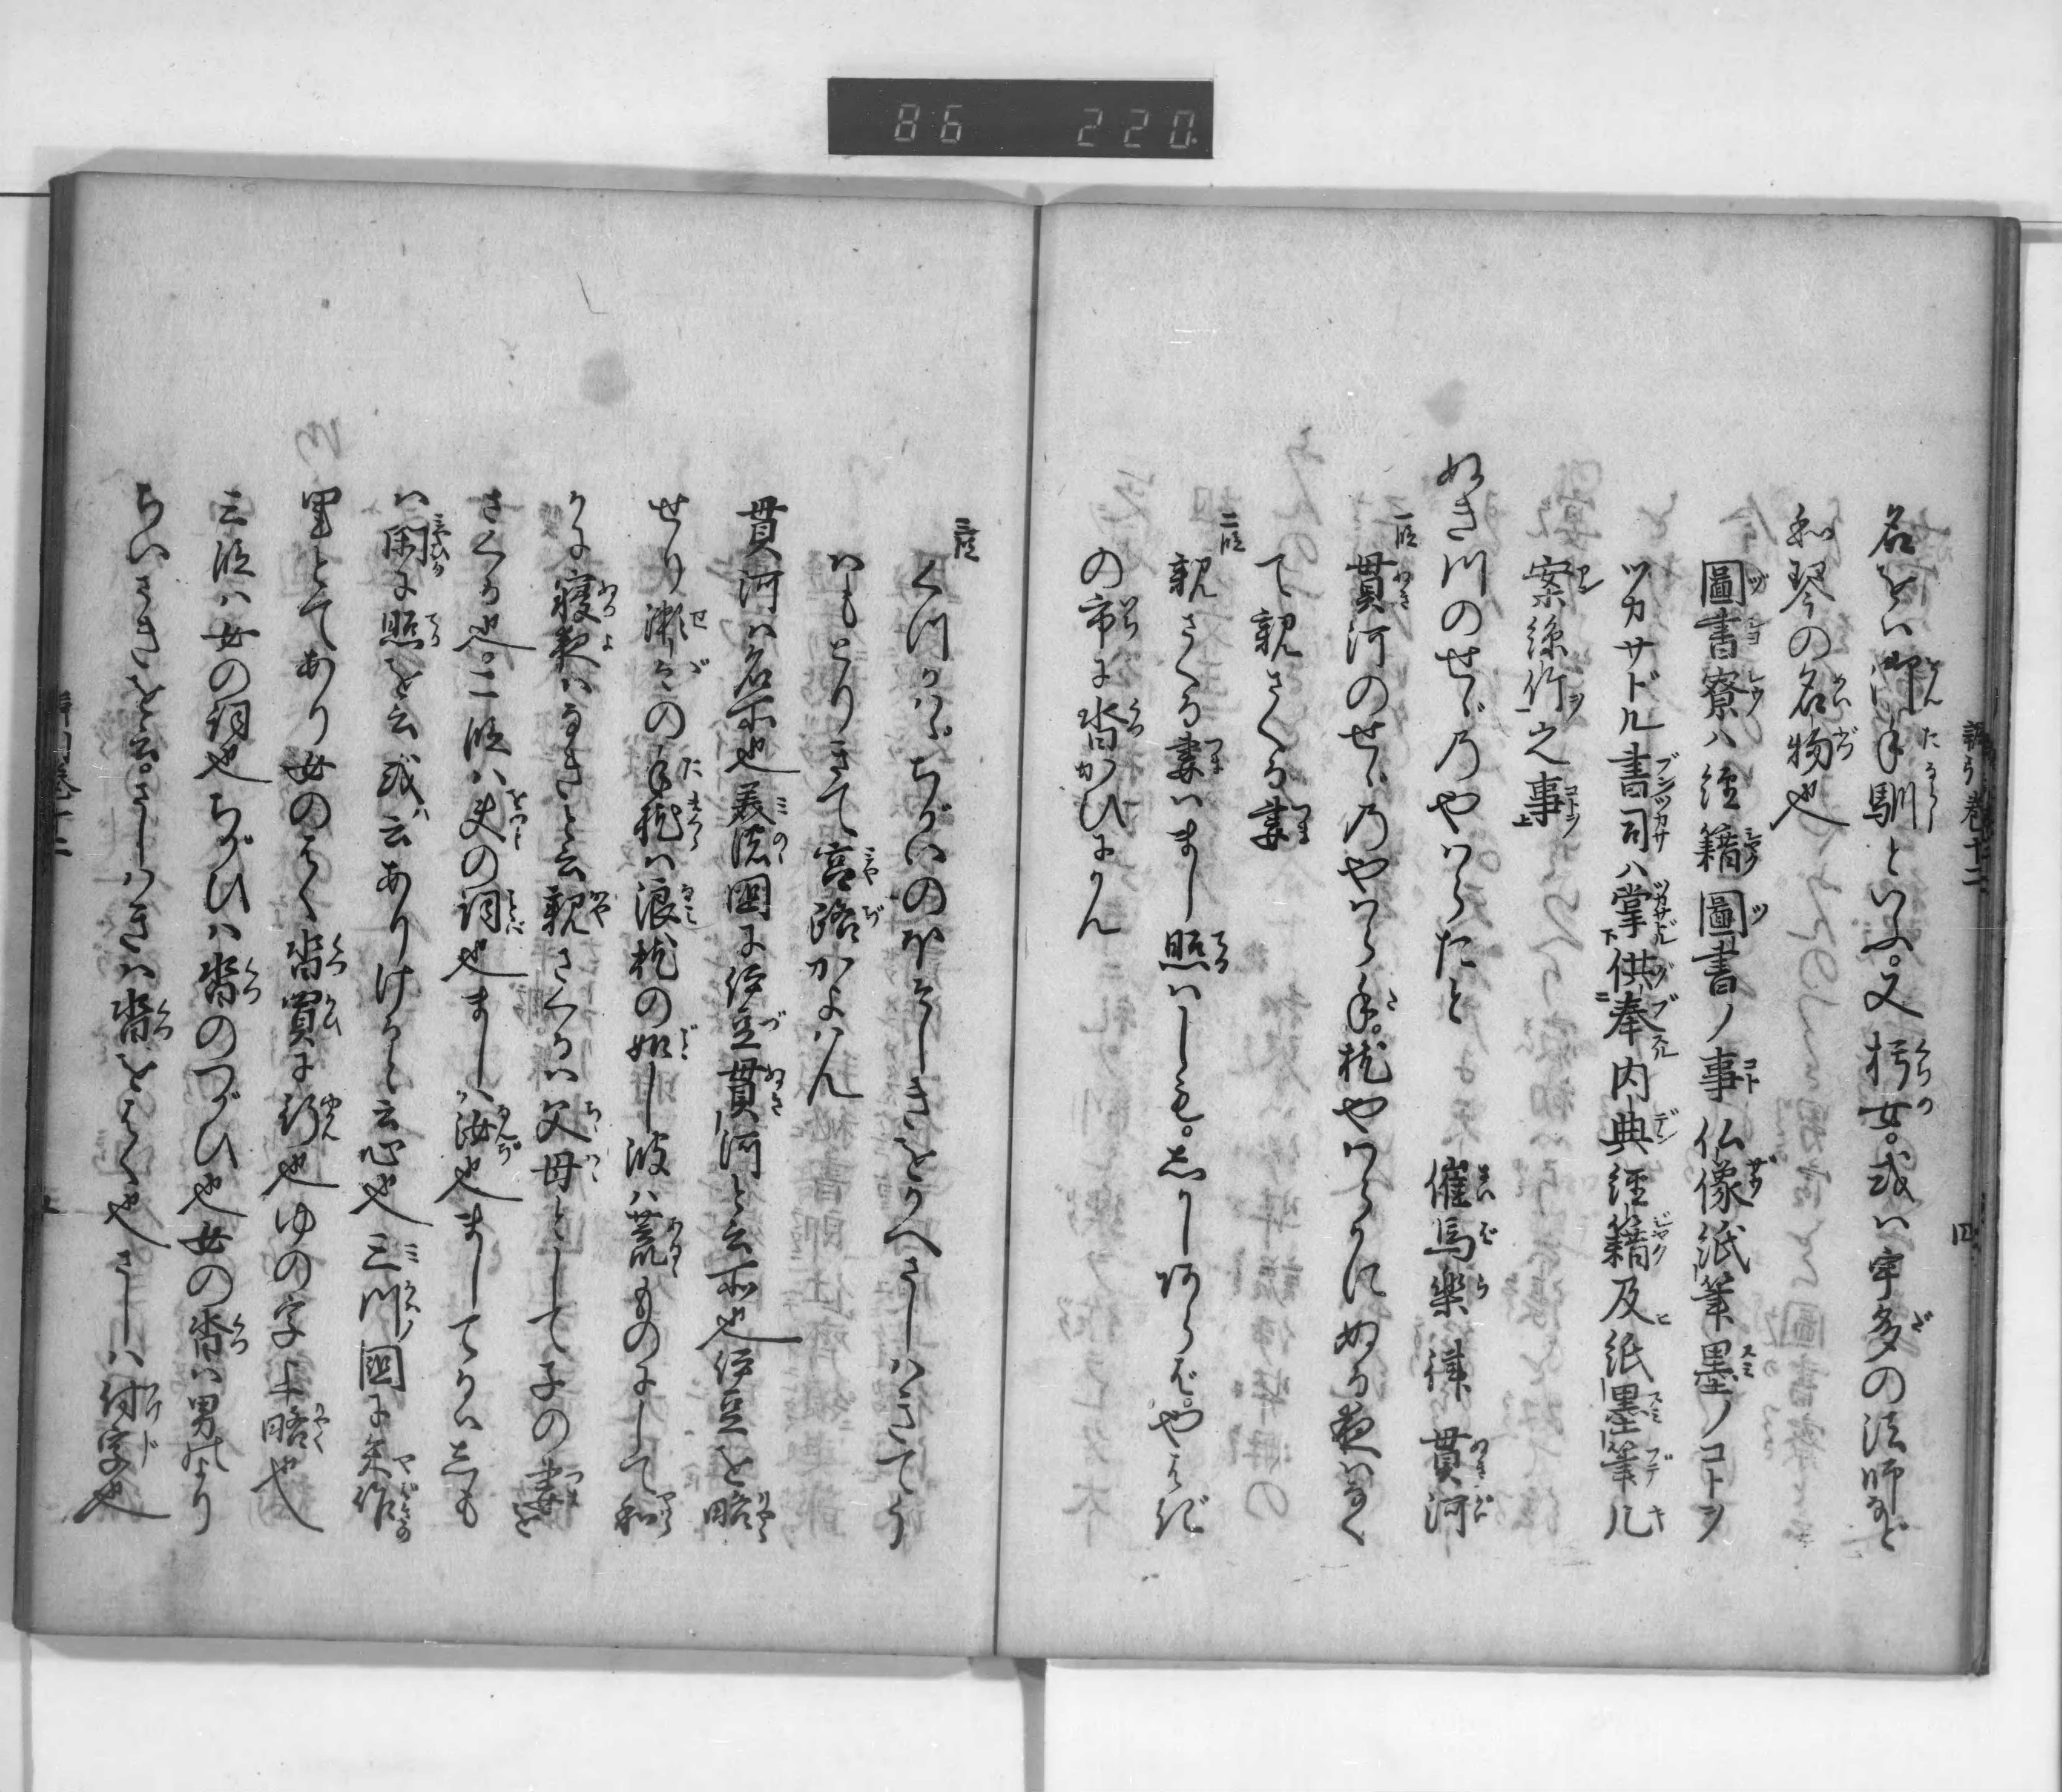 86 220
名をハ御手馴といふ。又朽女。或ハ宇多の法師など
和琴の名物也
圖書寮ハ經籍圖書ノ事仏像紙筆墨ノコトヲ
ツカサドル書司ハ掌供奉内典經籍及紙墨筆几
案絲竹之事
ぬき川のせゞのやハらたと 催馬樂 律 貫河
一段 貫河のせゞのやハら手枕やハらかにぬる夜ハなく
て親さくる妻
二段 親さくる妻ハまし照ハしも。しかしあらばやはぎ
の市に沓かひにかん
三段 くつかハゞちがいのほそしきをかへさしはきてう
はもとりきて宮路かよハん
貫河ハ名所也美濃國に伊豆貫河と云所也伊豆を略
せり瀬々の手枕ハ浪枕の如し波ハ荒ものにして和
かに寝夜ハなきと云親さくるハ父母として子の妻を
さくる也。二段ハ夫の詞也ましハ汝也ましてるハしも
ハ閑に照を云或云ありけると云心也三川國に矢作
里とてあり女のはく沓買に行也ゆの字ハ略也
三段ハ女の詞也ちがひハ沓のつがひ也女の沓ハ男のより
ちいさきを云。さしハきハ沓をはく也さしハ付字也
巻十二
四
巻十二